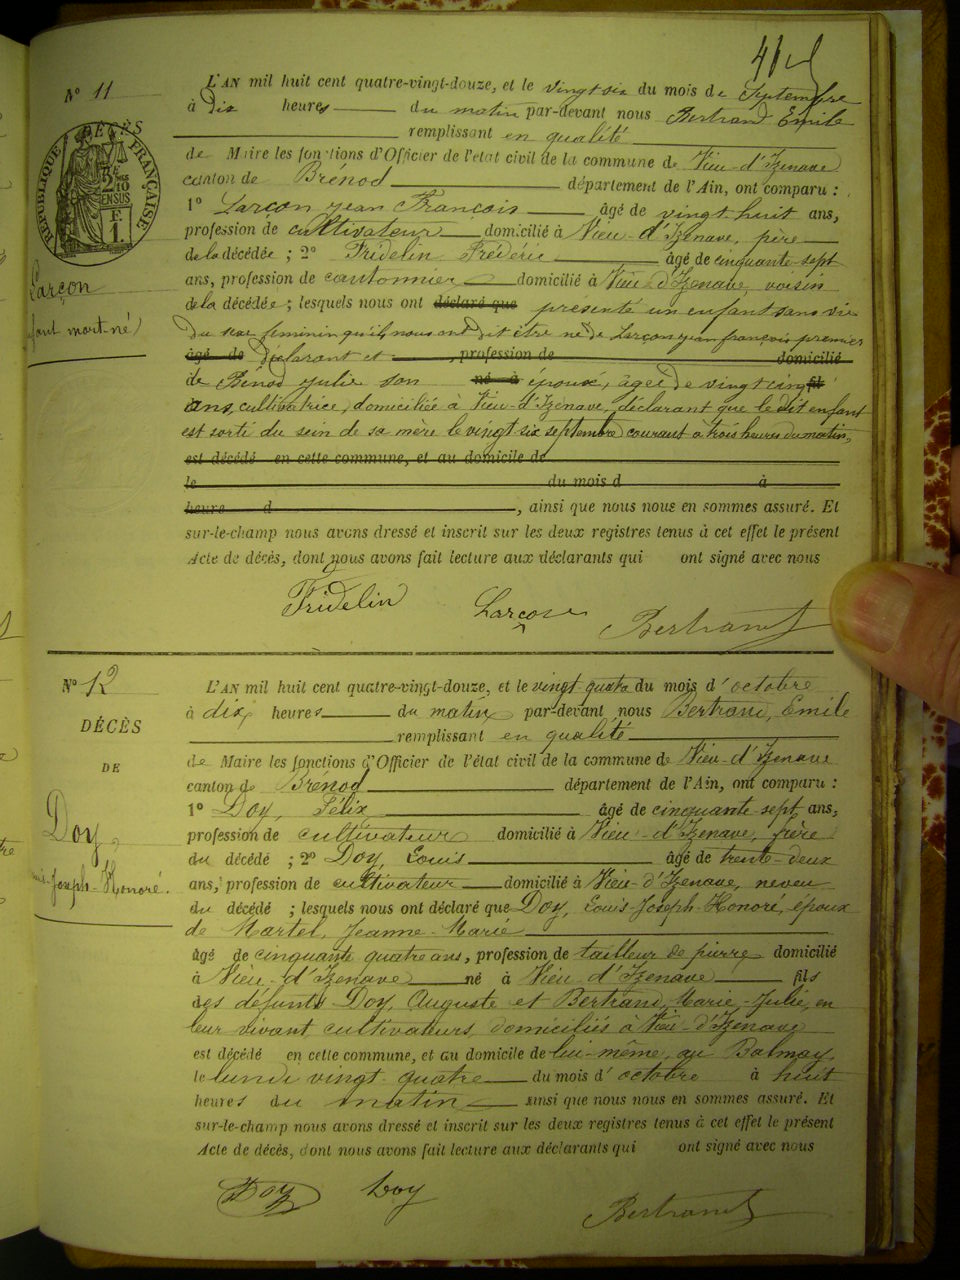 N° 11
L'AN mil huit cent quatre-vingt-douze, et le vingt six du mois de Septembre
à Dix heures du matin par-devant nous Bertrand Emile
remplissant en qualité
de Maire les fonctions d'Officier de l'état civil de la commune de Vieu-d'Izenave
canton de Brénod département de l'Ain, ont comparu :
1° Larçon jean François âgé de vingt huit ans,
profession de cultivateur domicilié à Vieu-d'Izenave, père
de la décédée ; 2° Fridelin Frédéric âgé de cinquante sept
ans, profession de cantonnier domicilié à Vieu d'Izenave, voisin
de la décédée ; lesquels nous ont déclaré que présenté un enfant sans vie
du sexe féminin qu'ils nous ont dit être né de Larçon jean françois premier
âgé de déclarant et profession de domicilié
de Bénod julie son né à épouse, âgée de vingt cinq fils
ans, cultivatrice, domiciliée à Vieu-d'Izenave, déclarant que le dit enfant
est sorti du sein de sa mère le vingt six septembre courant à trois heures du matin,
est décédé en cette commune, et au domicile de
le du mois d à
heure d , ainsi que nous nous en sommes assuré. Et
sur-le-champ nous avons dressé et inscrit sur les deux registres tenus à cet effet le présent
Acte de décès, dont nous avons fait lecture aux déclarants qui ont signé avec nous
Fridelin Larçon Bertrand
DÉCÈS
RÉPUBLIQUE FRANÇAISE
2/10 EN SUS
F. 1.
Larçon
mort-né)
N° 12
DÉCÈS
DE
Doy,
Joseph-Honoré.
L'AN mil huit cent quatre-vingt-douze, et le vingt quatre du mois d'octobre
à dix heures du matin par-devant nous Bertrand, Emile
remplissant en qualité
de Maire les fonctions d'Officier de l'état civil de la commune de Vieu-d'Izenave
canton de Brénod département de l'Ain, ont comparu :
1° Doy, Félix âgé de cinquante sept ans,
profession de cultivateur domicilié à Vieu-d'Izenave, frère
du décédé ; 2° Doy, Louis âgé de trente-deux
ans, profession de cultivateur domicilié à Vieu-d'Izenave, neveu
du décédé ; lesquels nous ont déclaré que Doy, Louis-Joseph-Honoré, époux
de Martel, Jeanne-Marie
âgé de cinquante quatre ans, profession de tailleur de pierre domicilié
à Vieu-d'Izenave né à Vieu d'Izenave fils
des défunts Doy, Auguste et Bertrand, Marie-Julie, en
leur vivant cultivateurs, domiciliés à Vieu-d'Izenave
est décédé en cette commune, et au domicile de lui-même, au Balmay
le lundi vingt-quatre du mois d'octobre à huit
heures du matin ainsi que nous nous en sommes assuré. Et
sur-le-champ nous avons dressé et inscrit sur les deux registres tenus à cet effet le présent
Acte de décès, dont nous avons fait lecture aux déclarants qui ont signé avec nous
Doy Doy Bertrand